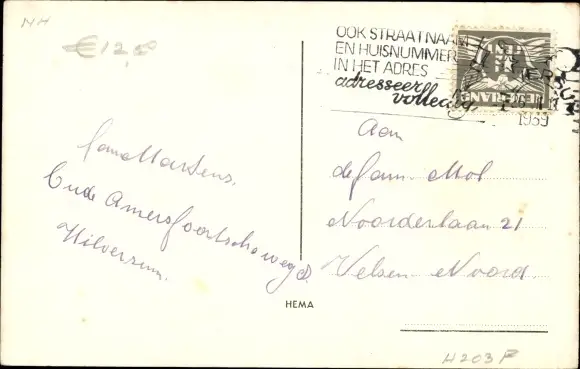 NH
€ 12,50
OOK STRAATNAAM
EN HUISNUMMER
IN HET ADRES
adresseer
volledig
NEDERLAND
1939
Aan
de fam. Mol
Noorderlaan 21
Velsen-Noord.
fam Martens.
Oude Amersfoortscheweg
Hilversum.
HEMA
H203F